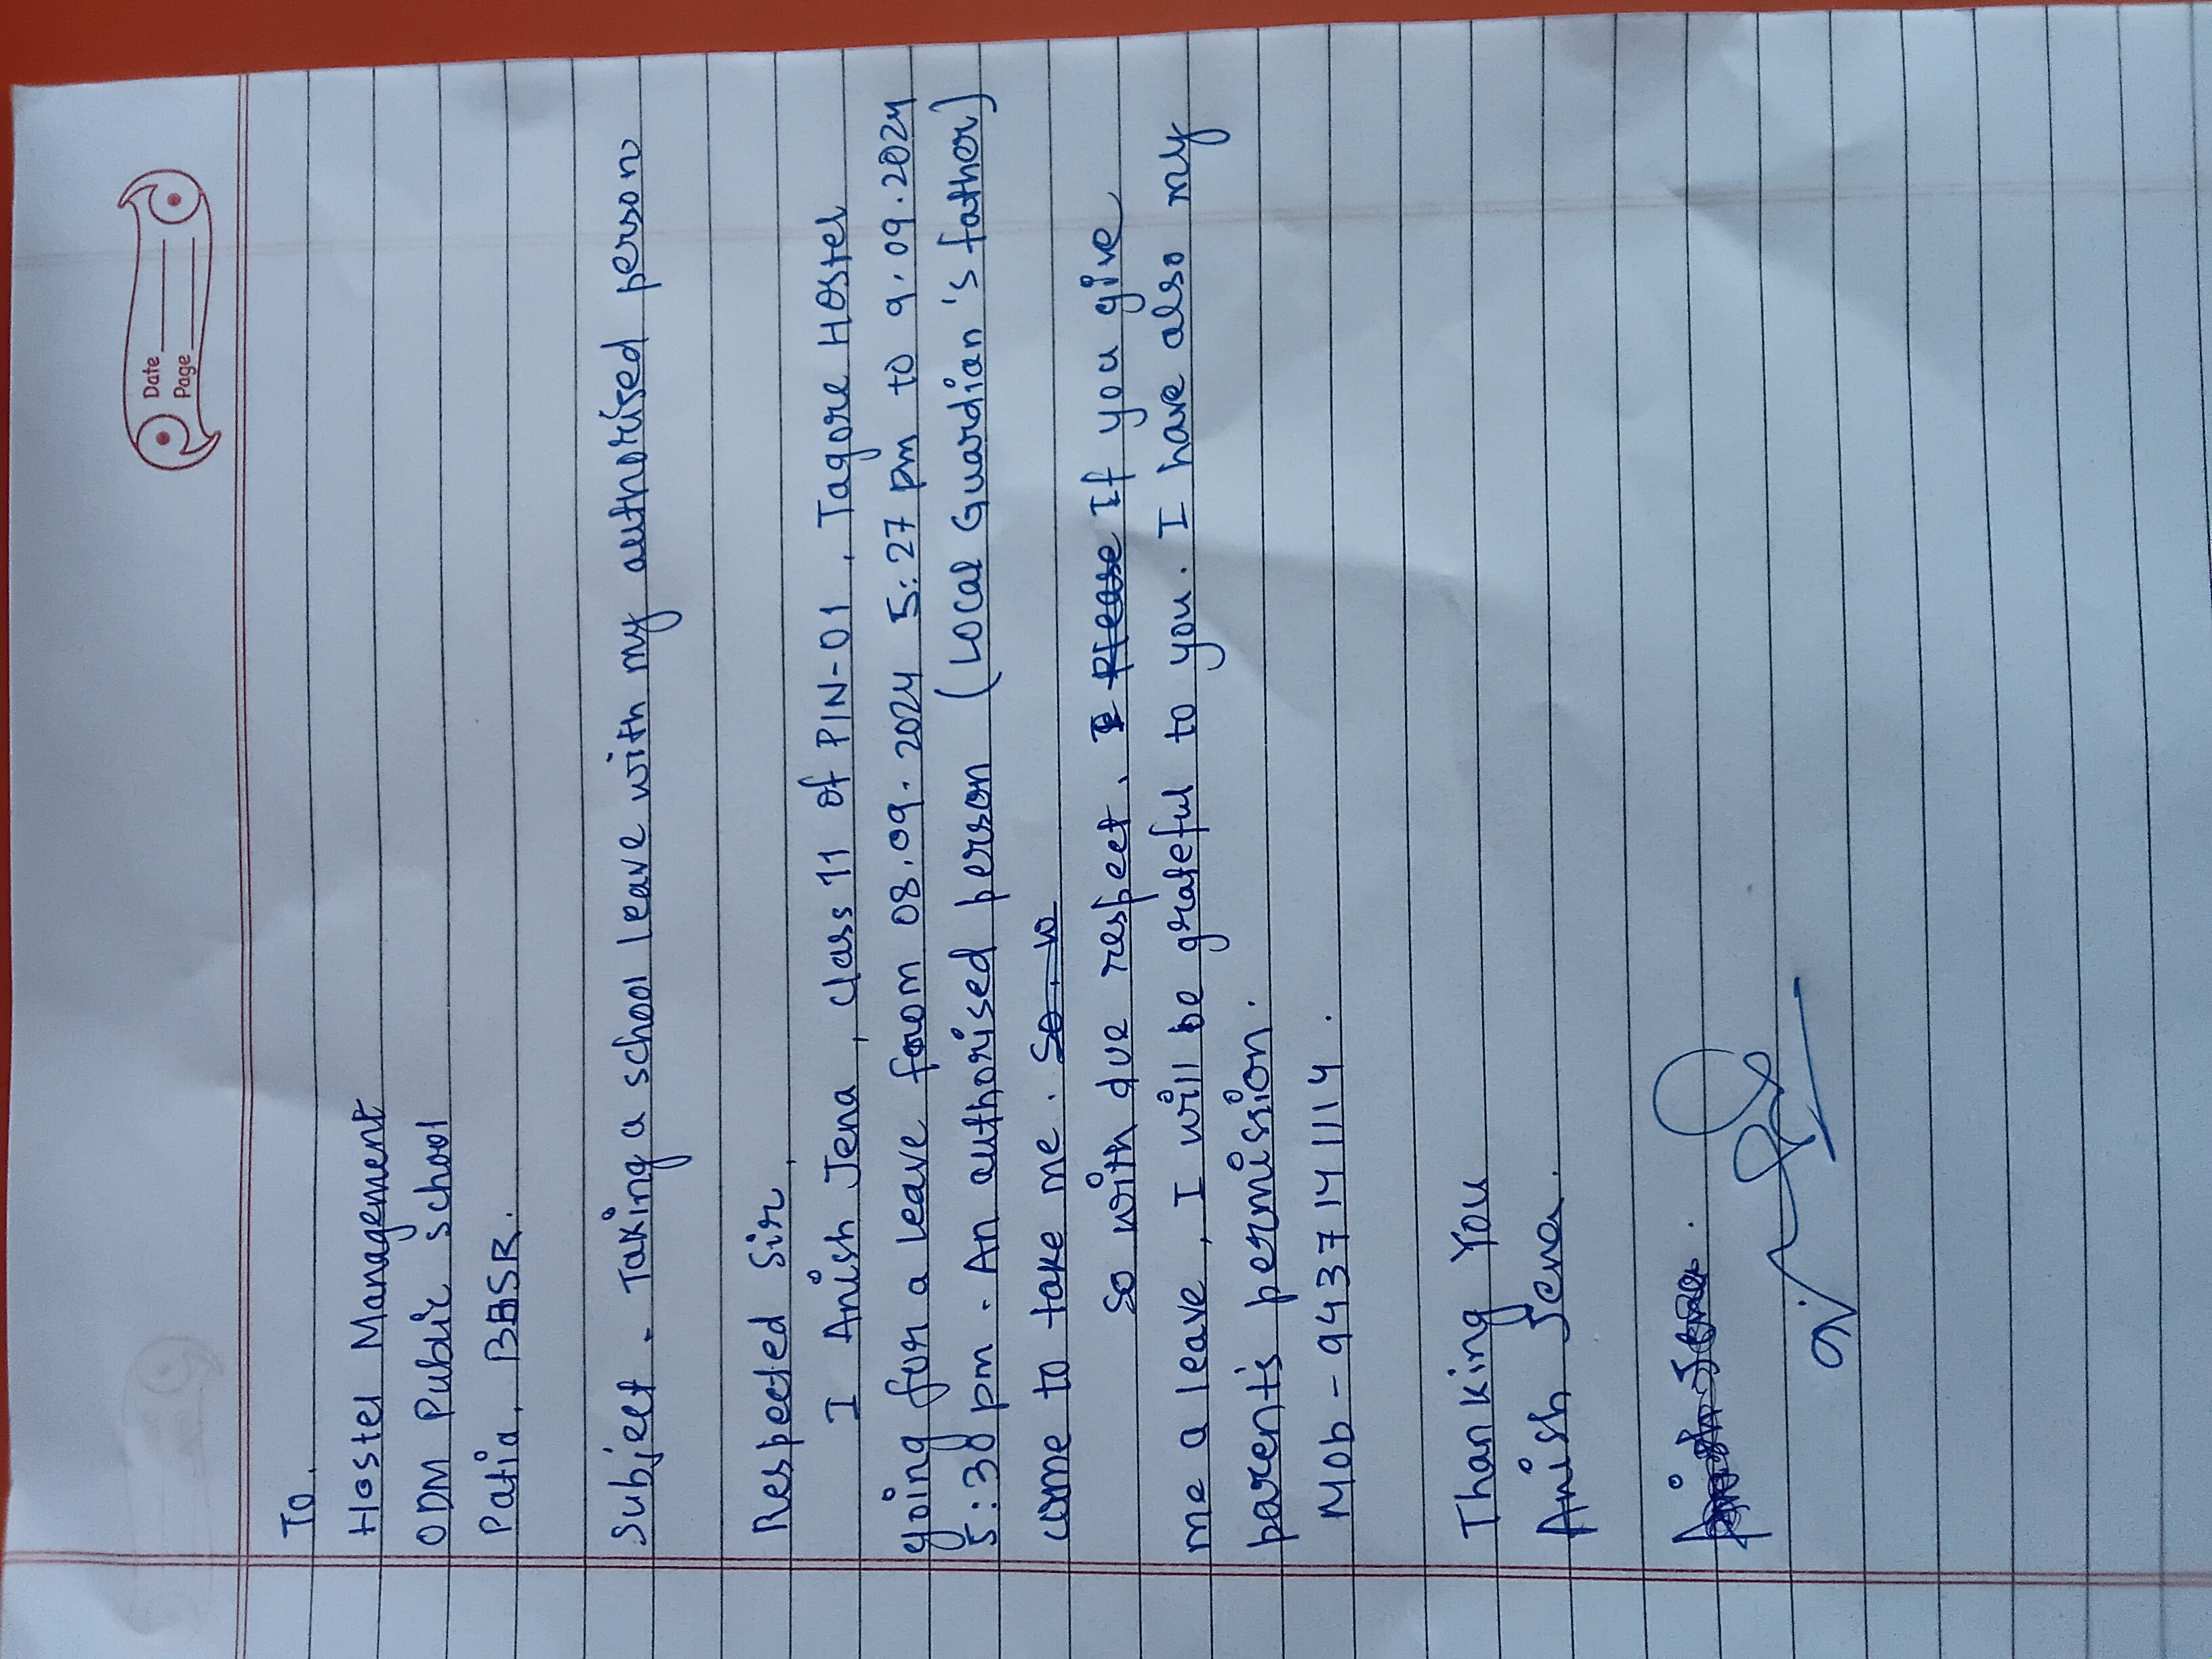 Date
Page
To,
Hostel Management
ODM Public School
Patia, BBSR.
Subject - Taking a school leave with my authorised person
Respected Sir,
I Anish Jena, class 11 of PIN-01, Tagore Hostel
going for a leave from 08.09.2024 5:27 pm to 9.09.2024
5:30 pm. An authorised person (Local Guardian's father)
come to take me. So w
So with due respect, I Please If you give
me a leave, I will be grateful to you. I have also my
parent's permission.
Mob - 9437141114.
Thanking You
Anish Jena.
Anish Jena.